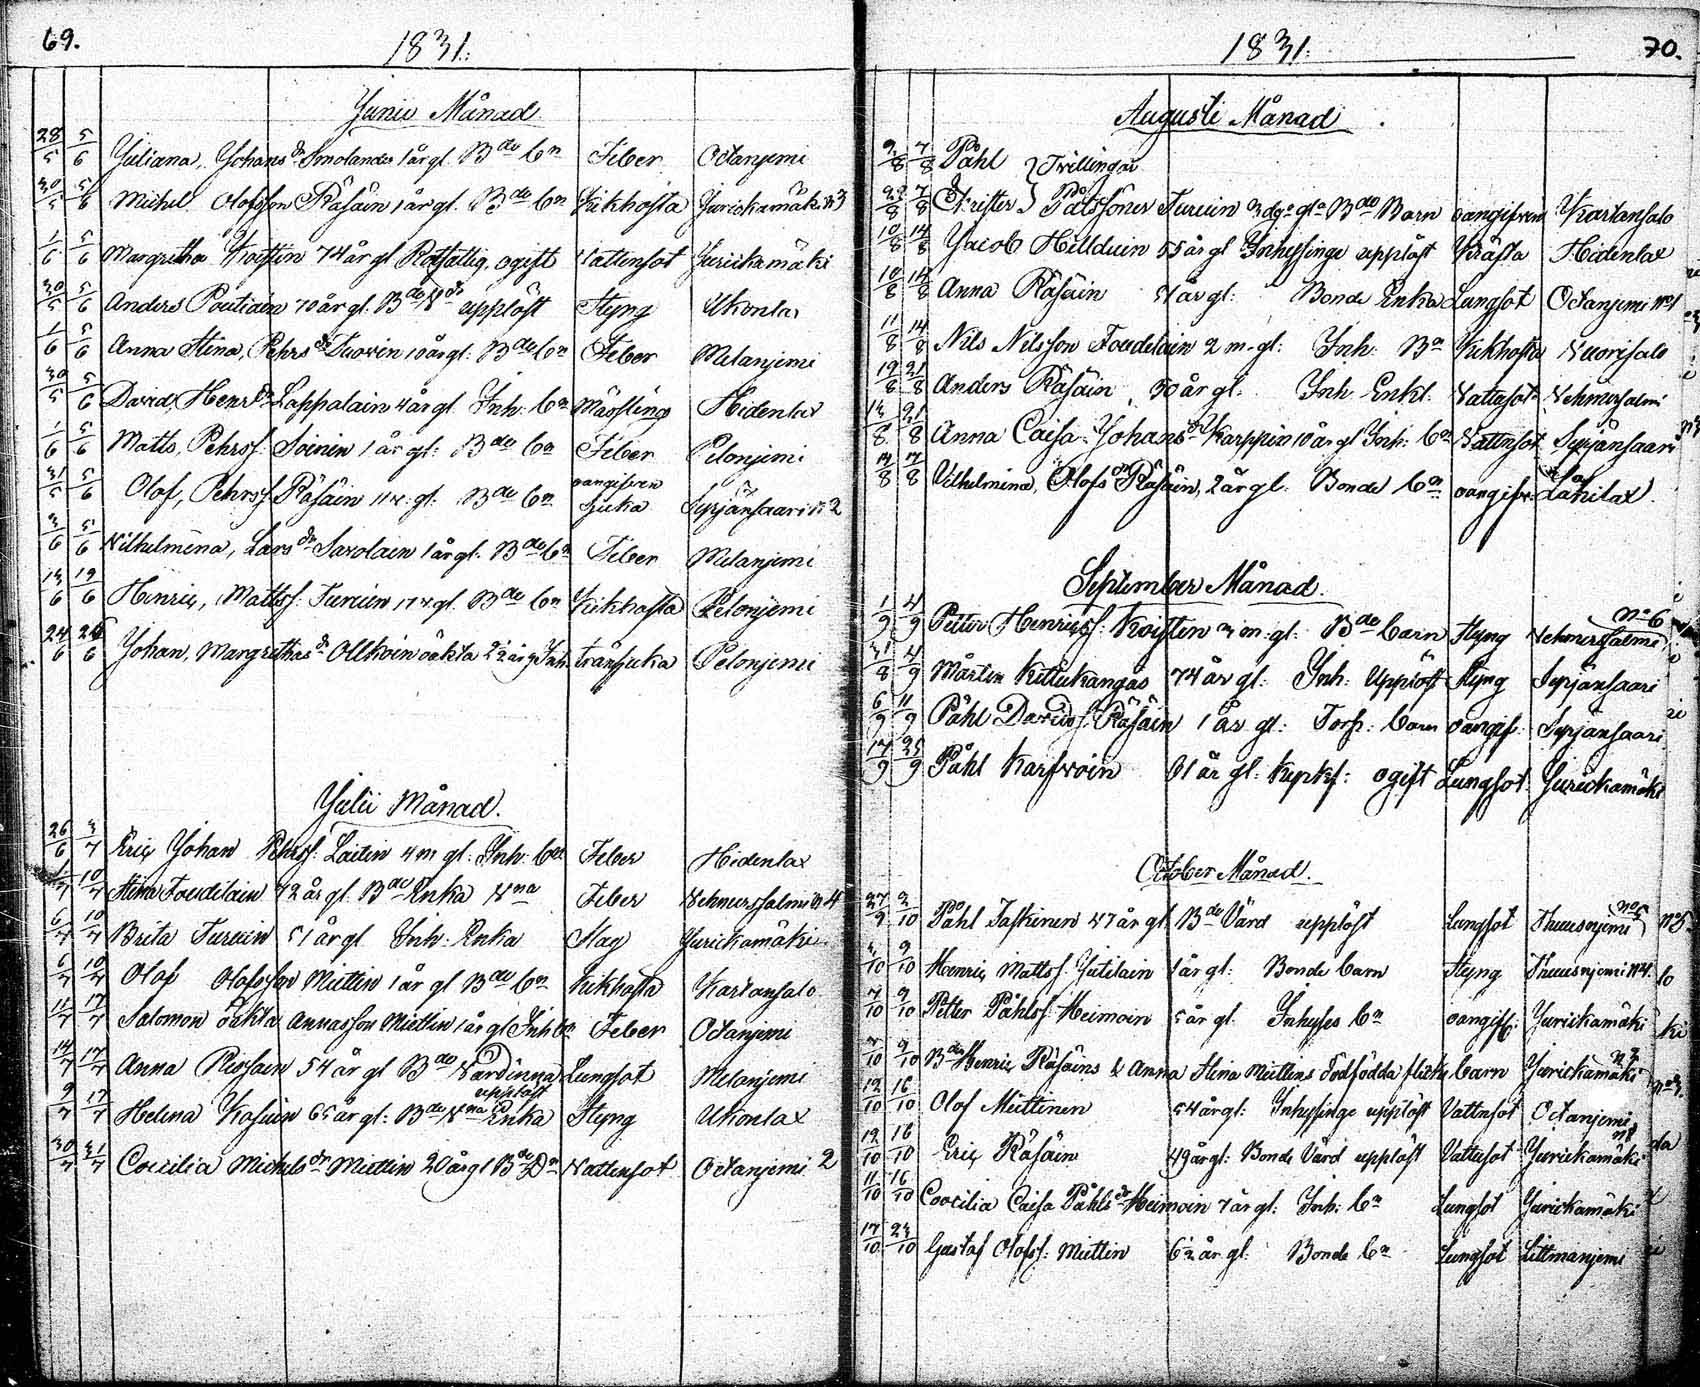 69.
1831.
Junii Månad
28/5 5/6 Juliana, Johans dr Smolander 1 år gl. Bde bn Feber Octanjemi
30/5 5/6 Michel Olofsson Räsäin 1 år gl. Bde bn Kikhosta Jurickamäki N3
1/6 5/6 Margretha Koistin 74 år gl Rotfattig, ogift Vattensot Jurickamäki
30/5 5/6 Anders Poutiain 70 år gl. Bde upplöst Styng Ukonlax
1/6 5/6 Anna Stina, Pehrs dr Tuovin 10 år gl. Bde bn Feber Melanjemi
30/5 5/6 David, Henr Lappalain 4 år gl Inh. bn Mässling Hidenlax
1/6 5/6 Matts, Pehrss. Soinin 1 år gl: Bde bn Feber Pelonjemi
oangifven
31/5 5/6 Olof, Pehrss Räsäin gl. Bde bn Sjuka Syrjänsaari N2
3/6 5/6 Vilhelmina, Lars dr Savolain 1 år gl. Bde bn Feber Melanjemi
13/6 19/6 Henric, Mattss. Turuin gl. Bde bn Kikhosta Pelonjemi
24/6 26/6 Johan, Margrethas Ollkoin oäkta 2½ år g Inh. Trånsjuka Pelonjemi
Julii Månad.
26/6 3/7 Eric Johan Pehrss. Laitin 4 m gl. Inh. bn Feber Hidenlax
1/7 10/7 Stina Toudilain 72 år gl. Bde Enka Feber Vehmersalmi N4
6/7 10/7 Brita Turuin 51 år gl Inh. Enka Slag Jurickamäki
6/7 10/7 Olof Olofsson Miettin 1 år gl Bde bn Kikhosta Kartansalo
11/7 17/7 Salomon oäkta Annasson Miettin 1 år gl Inh bn Feber Octanjemi
14/7 17/7 Anna Rissain 54 år gl Bde Värdinna Lungsot Melanjemi
upplöst
9/7 17/7 Helena Kasuin 65 år gl: Bde Enka Styng Ukonlax
30/7 31/7 Coecilia Michels dr Miettin 20 år gl Bde Dn Vattensot Octanjemi 2
70.
1831.
Augusti Månad
9/8 7/8 Påhl } Trillingar
22/8 7/8 & Christer } Påhlssöner Turuin 3 dgr gla Bde Barn oangifven Kartansalo
10/8 14/8 Jacob Hillduin 55 år gl Inhysinge upplöst Kräfta Hidenlax
10/8 14/8 Anna Räsäin 51 år gl: Bonde Enka Lungsot Octanjemi No1
11/8 14/8 Nils Nilsson Toudilain 2 m. gl: Inh. Bn Kikhosta Vuorisalo
19/8 21/8 Anders Räsäin, 30 år gl. Inh Enkl. Vattusot Vehmersalmi
13/8 21/8 Anna Caisa Johans dr Karppin 10 år gl Inh: bn Vattnsot Syrjänsaari
14/8 7/8 Vilhelmina, Olofs dr Räsäin, 2 år gl. Bonde bn oangifv. Lahilax
September Månad.
No 6
1/9 4/9 Petter Henricss. Koisten 3 m. gl: Bde barn Styng Vehmersalmi
31/8 4/9 Mårten Kettukangas 74 år gl: Inh: Upplöst Styng Syrjänsaari
6/9 11/9 Påhl Davidss. Räsäin 1 år gl: Torp: barn oangif: Syrjänsaari
17/9 25/9 Påhl Karfvoin 61 år gl: Kyrkf: ogift Lungsot Jurickamäki
October Månad.
no5
27/9 2/10 Påhl Jaskinen 47 år gl Bde Värd upplöst Lungsot Thuusnjemi no5.
2/10 9/10 Henric Mattss. Jutilain 1 år gl: Bonde barn Styng Thuusnjemi N4.
7/10 9/10 Petter Påhlss. Heimoin 5 år gl. Inhyses bn oangiff: Jurickamäki
7/10 9/10 Bden Henric Räsäins & Anna Stina Miettins dödfödda flicke barn Jurickamäki
12/10 16/10 Olof Miettinen 54 år gl: Inhysinge upplöst Vattnsot Octanjemi
N8
12/10 16/10 Eric Räsäin 49 år gl: Bonde Värd upplöst Vattusot Jurickamäki
11/10 16/10 Coecilia Caisa Påhls dr Heimoin 7 år gl: Inh: bn Lungsot Jurickamäki
17/10 23/10 Gustaf Olofss: Miettin 6½ år gl: Bonde bn Lungsot Littmanjemi